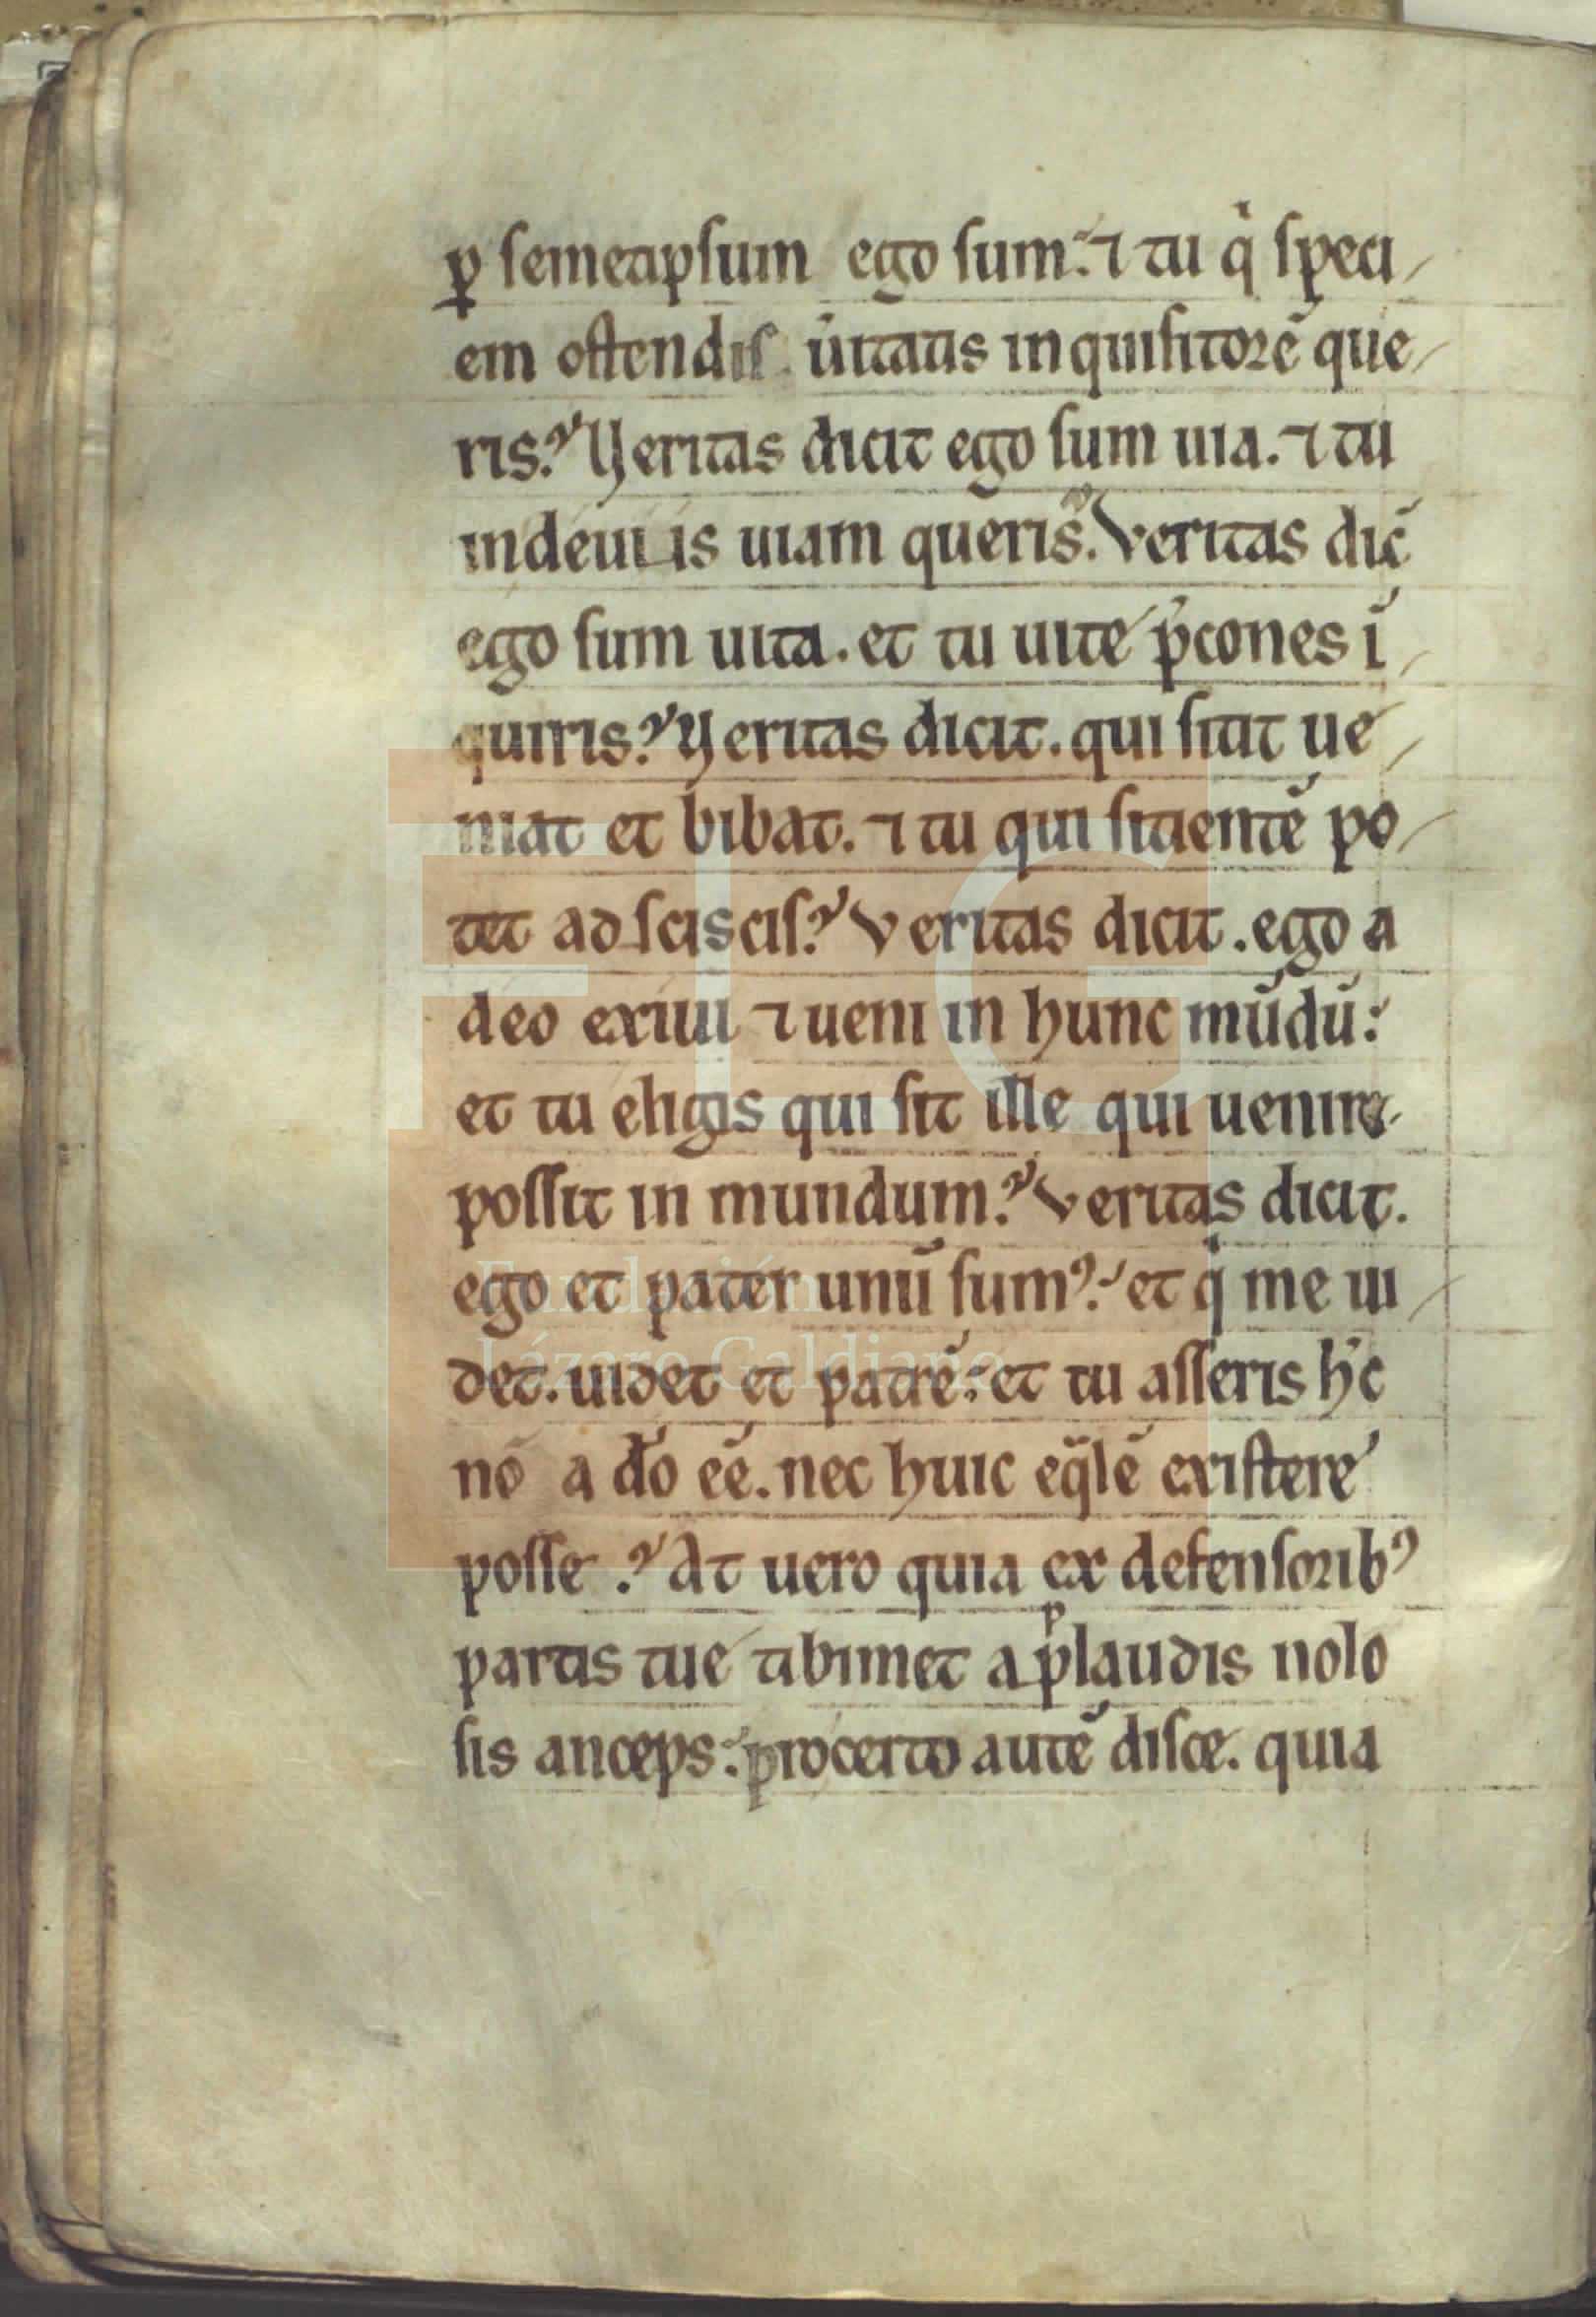 ꝑ semetipsum ego sum. ⁊ tu qͥ speci
em ostendis ueͥtatis inquisitorē que
ris? Veritas dicit ego sum uia. ⁊ tu
in deuiis uiam queris? Veritas dic̄
ego sum uita. et tu uite p̄cones ī
quiris? Veritas dicit. qui sitit ue
niat et bibat. ⁊ tu qui sitientē po
tet adsciscis? Veritas dicit. ego a
deo exiui ⁊ ueni in hunc mūdū:
et tu eligis qui sit ille qui uenire
possit in mundum? Veritas dicit.
ego et pater unū sumꝰ: et qͥ me ui
det. uidet et patrē: et tu asseris h̄c
nō a dō eē. nec huic eq̄lē existere
posse? At uero quia ex defensoribꝰ
partis tue tibimet applaudis nolo
sis anceps: pro certo autē disce. quia
Fundación
Lázaro Galdiano
FLG